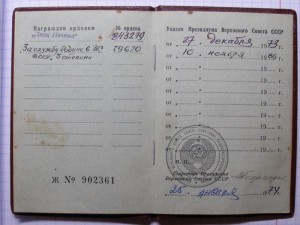 Награжден орденами
№ ордена
"Знак Почета"
843279
За службу Родине в ВС
79670
СССР, 3 степени
Ж № 902361
Указом Президиума Верховного Совета СССР
от 27 декабря 1973
от 10 ноября 1986
от 19
от 19
от 19
от 19
от 19
М. П.
Секретарь Президиума
Верховного Совета СССР
25 января 1974